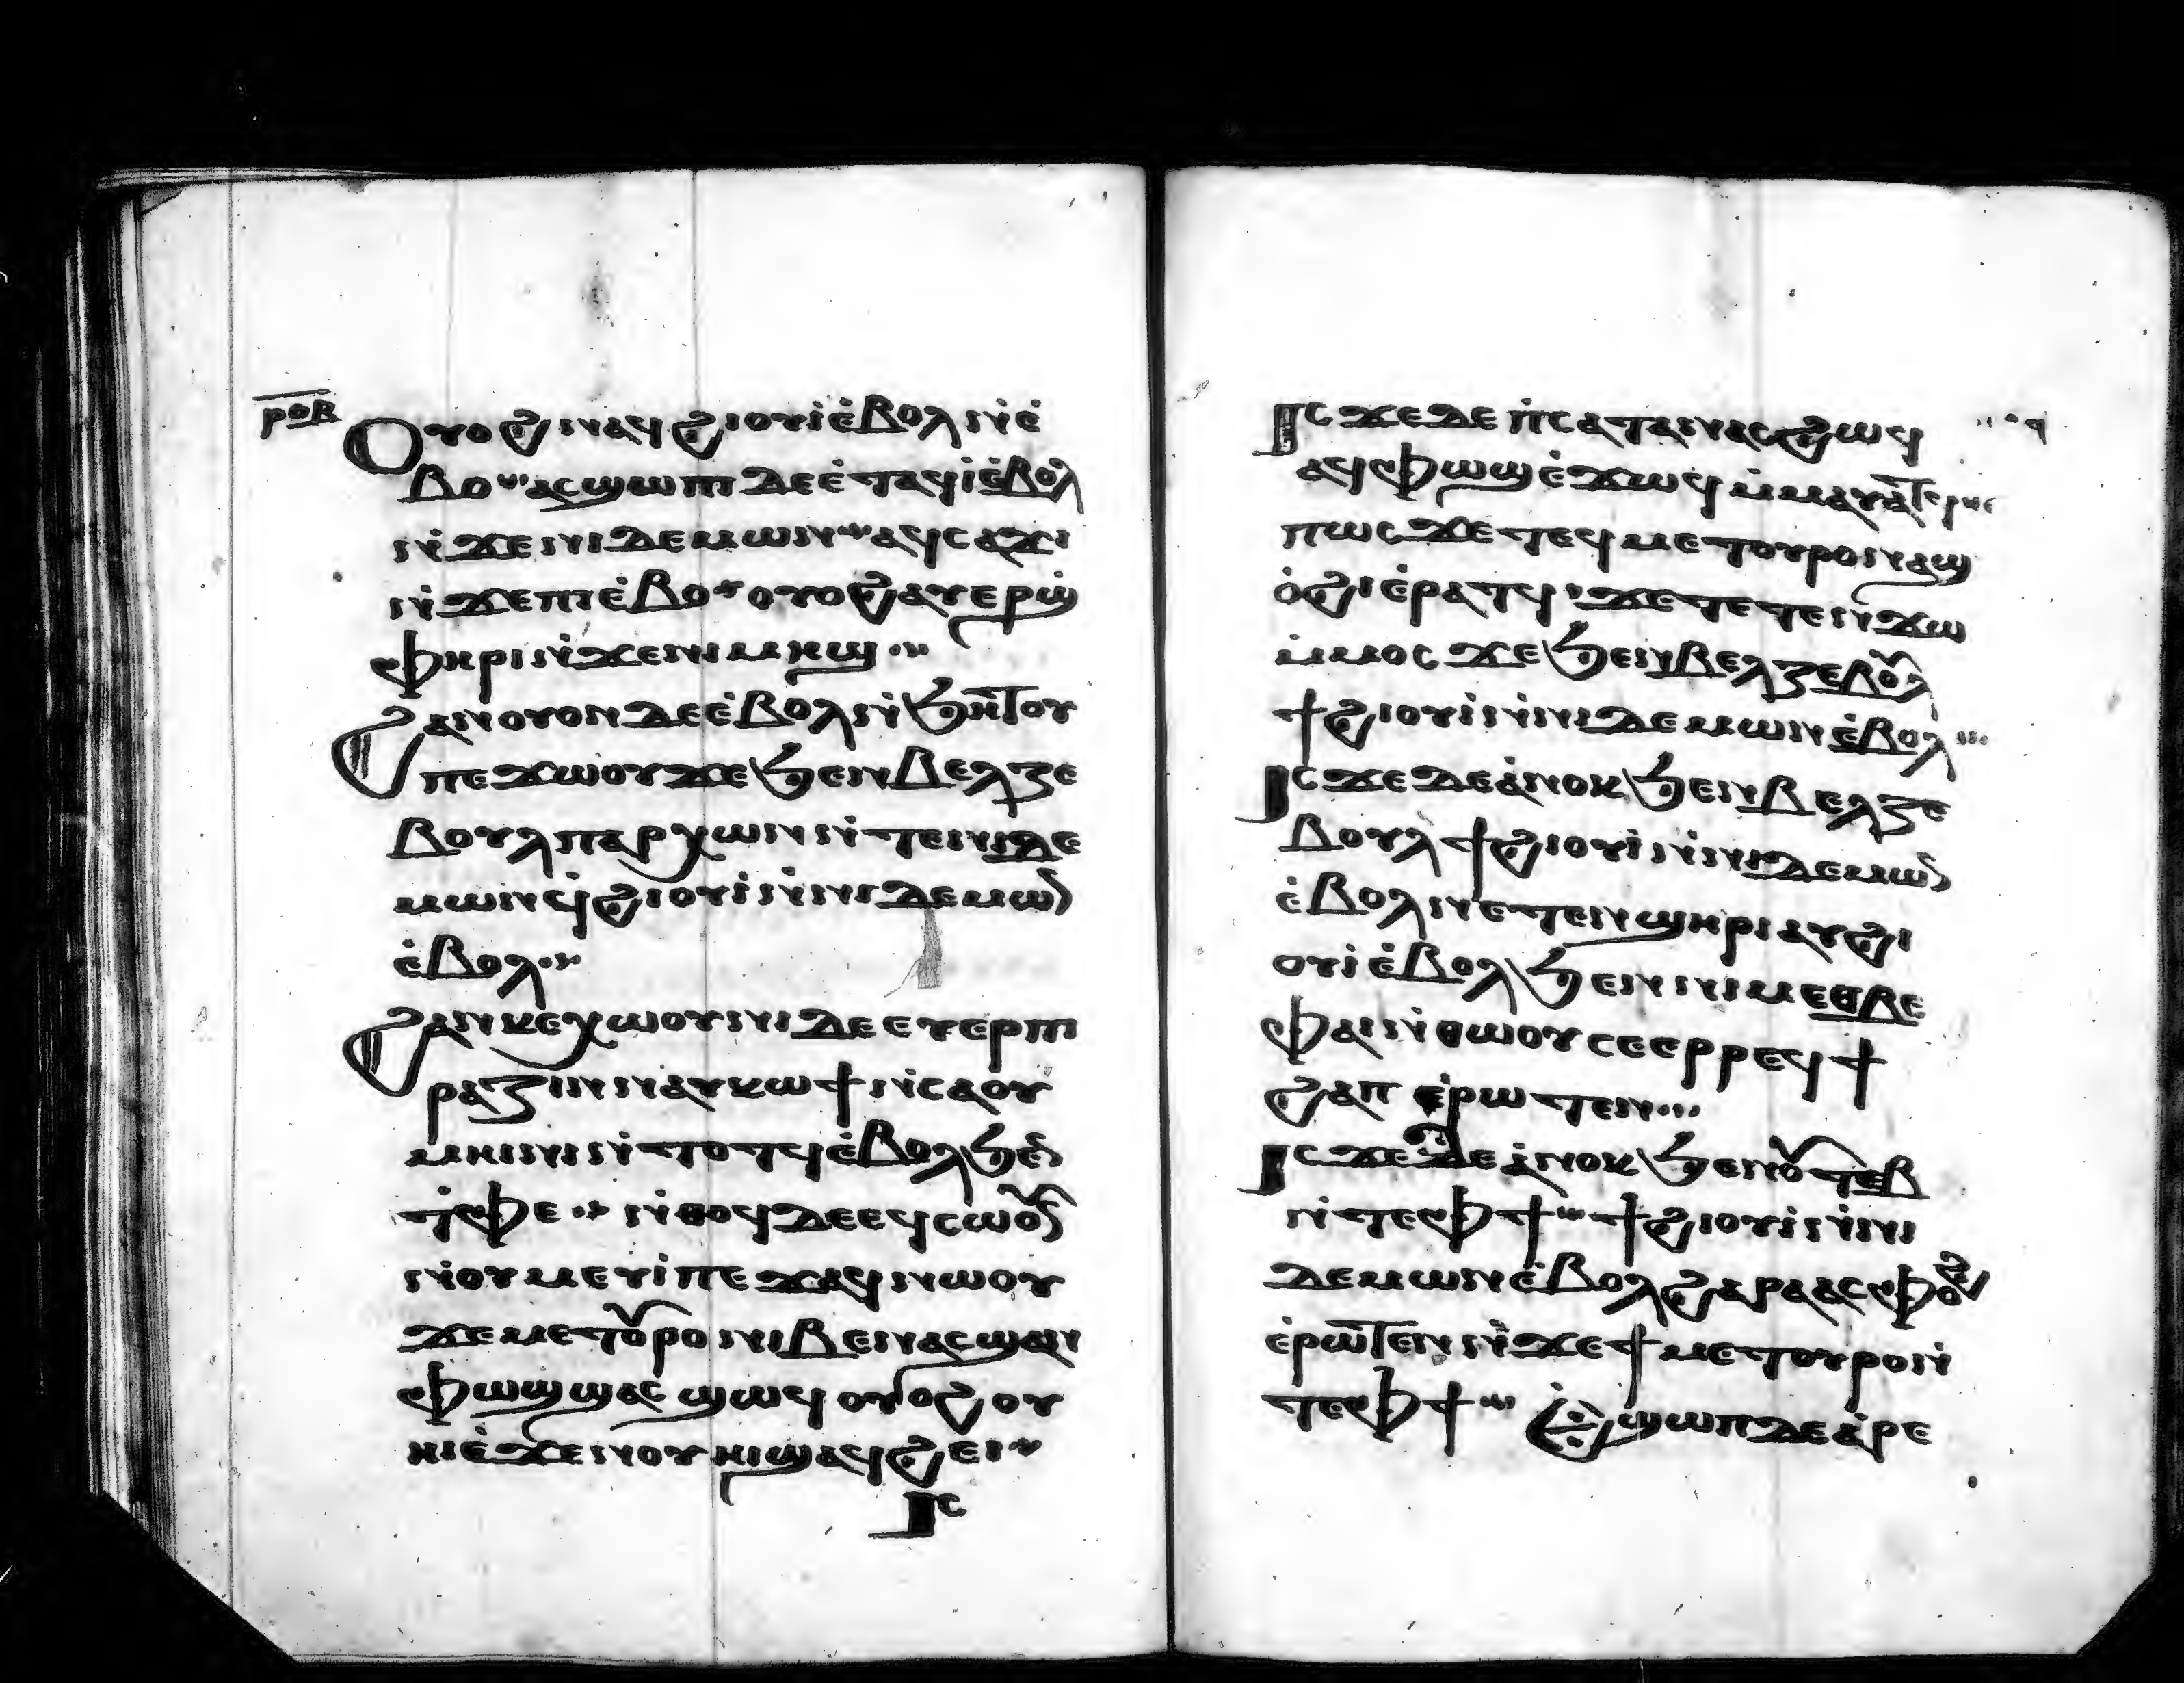 ⲣⲟⲃ
Ⲟⲩⲟϩ ⲛⲁϥϩⲓⲟⲩⲓ ⲉ̇ⲃⲟⲗ ⲛ̇ⲉ̇
ⲃⲟ ⲁⲥϣⲱⲡⲓ ⲇⲉ ⲉ̇ⲧⲁϥⲓ̇ ⲉ̇ⲃⲟⲗ
ⲛ̇ϫⲉ ⲡⲓⲇⲉⲙⲱⲛ ⲁϥⲥⲁϫⲓ
ⲛ̇ϫⲉ ⲡⲓⲉ̇ⲃⲟ ⲟⲩⲟϩ ⲁⲩⲉⲣϣ̇
ⲫⲏⲣⲓ ⲛ̇ϫⲉ ⲛⲓⲙⲏϣ
Ϩⲁⲛⲟⲩⲟⲛ ⲇⲉ ⲉ̇ⲃⲟⲗ ⲛ̇ϧⲏⲧⲟⲩ
ⲡⲉϫⲱⲟⲩ ϫⲉ ϧⲉⲛ ⲃⲉⲗⲍⲉ
ⲃⲟⲩⲗ ⲡⲁⲣⲭⲱⲛ ⲛ̇ⲧⲉ ⲛⲓⲇⲉ
ⲙⲱⲛ ϥ̇ϩⲓⲟⲩⲓ̇ ⲛ̇ⲛⲓⲇⲉⲙⲱ̅
ⲉ̇ⲃⲟⲗ
Ϩⲁⲛⲕⲉⲭⲱⲟⲩⲛⲓ ⲇⲉ ⲉⲩⲉⲣⲡⲓ
ⲣⲁⲍⲓⲛ ⲛⲁⲩⲕⲱϯ ⲛ̇ⲥⲁ ⲟⲩ
ⲙⲏⲓⲛⲓ ⲛ̇ⲧⲟⲧϥ ⲉ̇ⲃⲟⲗ ϧⲉ̅
ⲧ̇ⲫⲉ ⲛ̇ⲑⲟϥ ⲇⲉ ⲉϥⲥⲱⲟⲩ̅
ⲛ̇ⲟⲩⲙⲉⲩⲓ̇ ⲡⲉϫⲁϥ ⲛⲱⲟⲩ
ϫⲉ ⲙⲉⲧⲟⲩⲣⲟ ⲛⲓⲃⲉⲛ ⲁⲥϣⲁⲛ
ⲫⲱϣ ϣⲁⲥϣⲱϥ ⲟⲩⲟϩ ⲟⲩ
ⲏⲓ ⲉ̇ϫⲉⲛ ⲟⲩⲏⲓ ϣⲁϥϩⲉⲓ
Ⲓⲥ
Ⲓⲥϫⲉ ⲇⲉ ⲡ̇ⲥⲁⲧⲁⲛⲁⲥ ϩⲱϥ
ⲁϥⲫⲱϣ ⲉ̇ϫⲱϥ ⲙ̇ⲙⲁⲩⲁⲧϥ
ⲡⲱⲥ ϫⲉ ⲧⲉϥⲙⲉⲧⲟⲩⲣⲟ ⲛⲁϣ
ⲟ̇ϩⲓ ⲉ̇ⲣⲁⲧϥ ϫⲉ ⲧⲉⲧⲉⲛ̇ϫⲱ
ⲙ̇ⲙⲟⲥ ϫⲉ ϧⲉⲛ ⲃⲉⲗⲍⲉⲃⲟⲩⲗ
ϯϩⲓⲟⲩⲓ̇ ⲛ̇ⲛⲓⲇⲉⲙⲱⲛ ⲉ̇ⲃⲟⲗ
Ⲓⲥϫⲉ ⲇⲉ ⲁ̇ⲛⲟⲕ ϧⲉⲛ ⲃⲉⲗⲍⲉ
ⲃⲟⲩⲗ ϯϩⲓⲟⲩⲓ̇ ⲛ̇ⲛⲓⲇⲉⲙⲱ̅
ⲉ̇ⲃⲟⲗ ⲛⲉⲧⲉⲛϣⲏⲣⲓ ⲁⲩϩⲓ
ⲟⲩⲓ̇ ⲉ̇ⲃⲟⲗ ϧⲉⲛ ⲛⲓⲙ ⲉⲑⲃⲉ
ⲫⲁⲓ ⲛ̇ⲑⲱⲟⲩ ⲥⲉⲉⲣⲣⲉϥϯ
ϩⲁⲡ ⲉ̇ⲣⲱⲧⲉⲛ
Ⲓⲥϫⲉ ⲇⲉ ⲁ̇ⲛⲟⲕ ϧⲉⲛ ⲟⲩⲧⲉⲃ
ⲛ̇ⲧⲉ ⲫϯ ϯϩⲓⲟⲩⲓ̇ ⲛ̇ⲛⲓ
ⲇⲉⲙⲱⲛ ⲉ̇ⲃⲟⲗ ϩⲁⲣⲁ ⲁⲥⲫⲟϩ
ⲉ̇ⲣⲱⲧⲉⲛ ⲛ̇ϫⲉ ϯⲙⲉⲧⲟⲩⲣⲟ ⲛ̇
ⲧⲉ ⲫϯ Ⲉϣⲱⲡ ⲇⲉ ⲁ̇ⲣⲉ